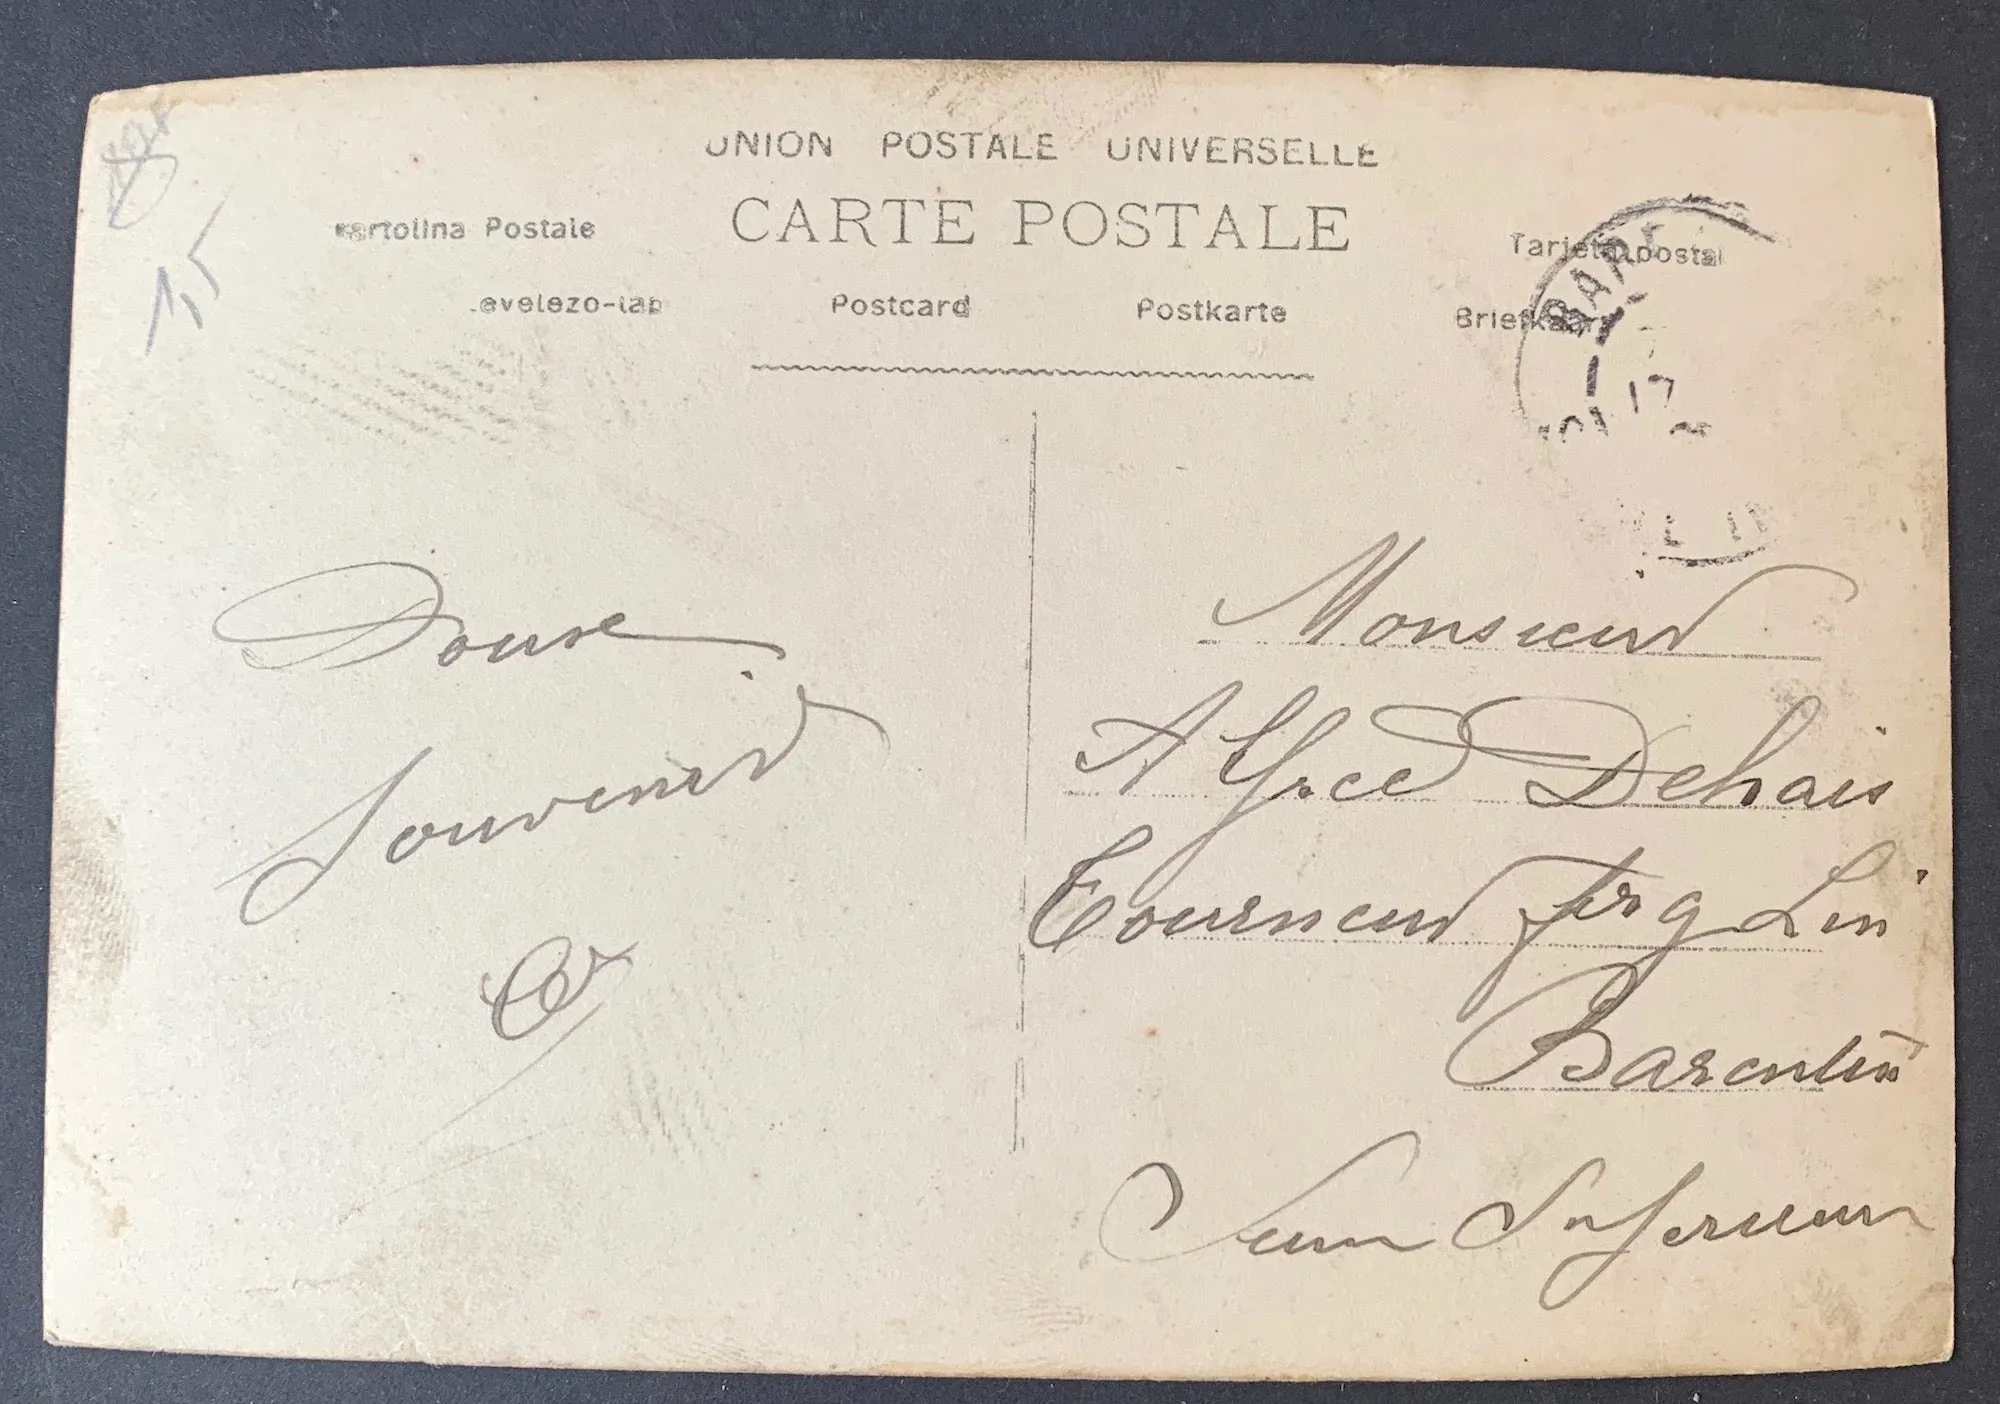 UNION POSTALE UNIVERSELLE
CARTE POSTALE
Cartolina Postale
Tarjeta postal
Levelezo-Lap
Postcard
Postkarte
Briefkaart
BARE
17
1,5
Douse
Souvenir
Monsieur
Alfred Dehais
Tourneur
Barentin
Seine Inferieure